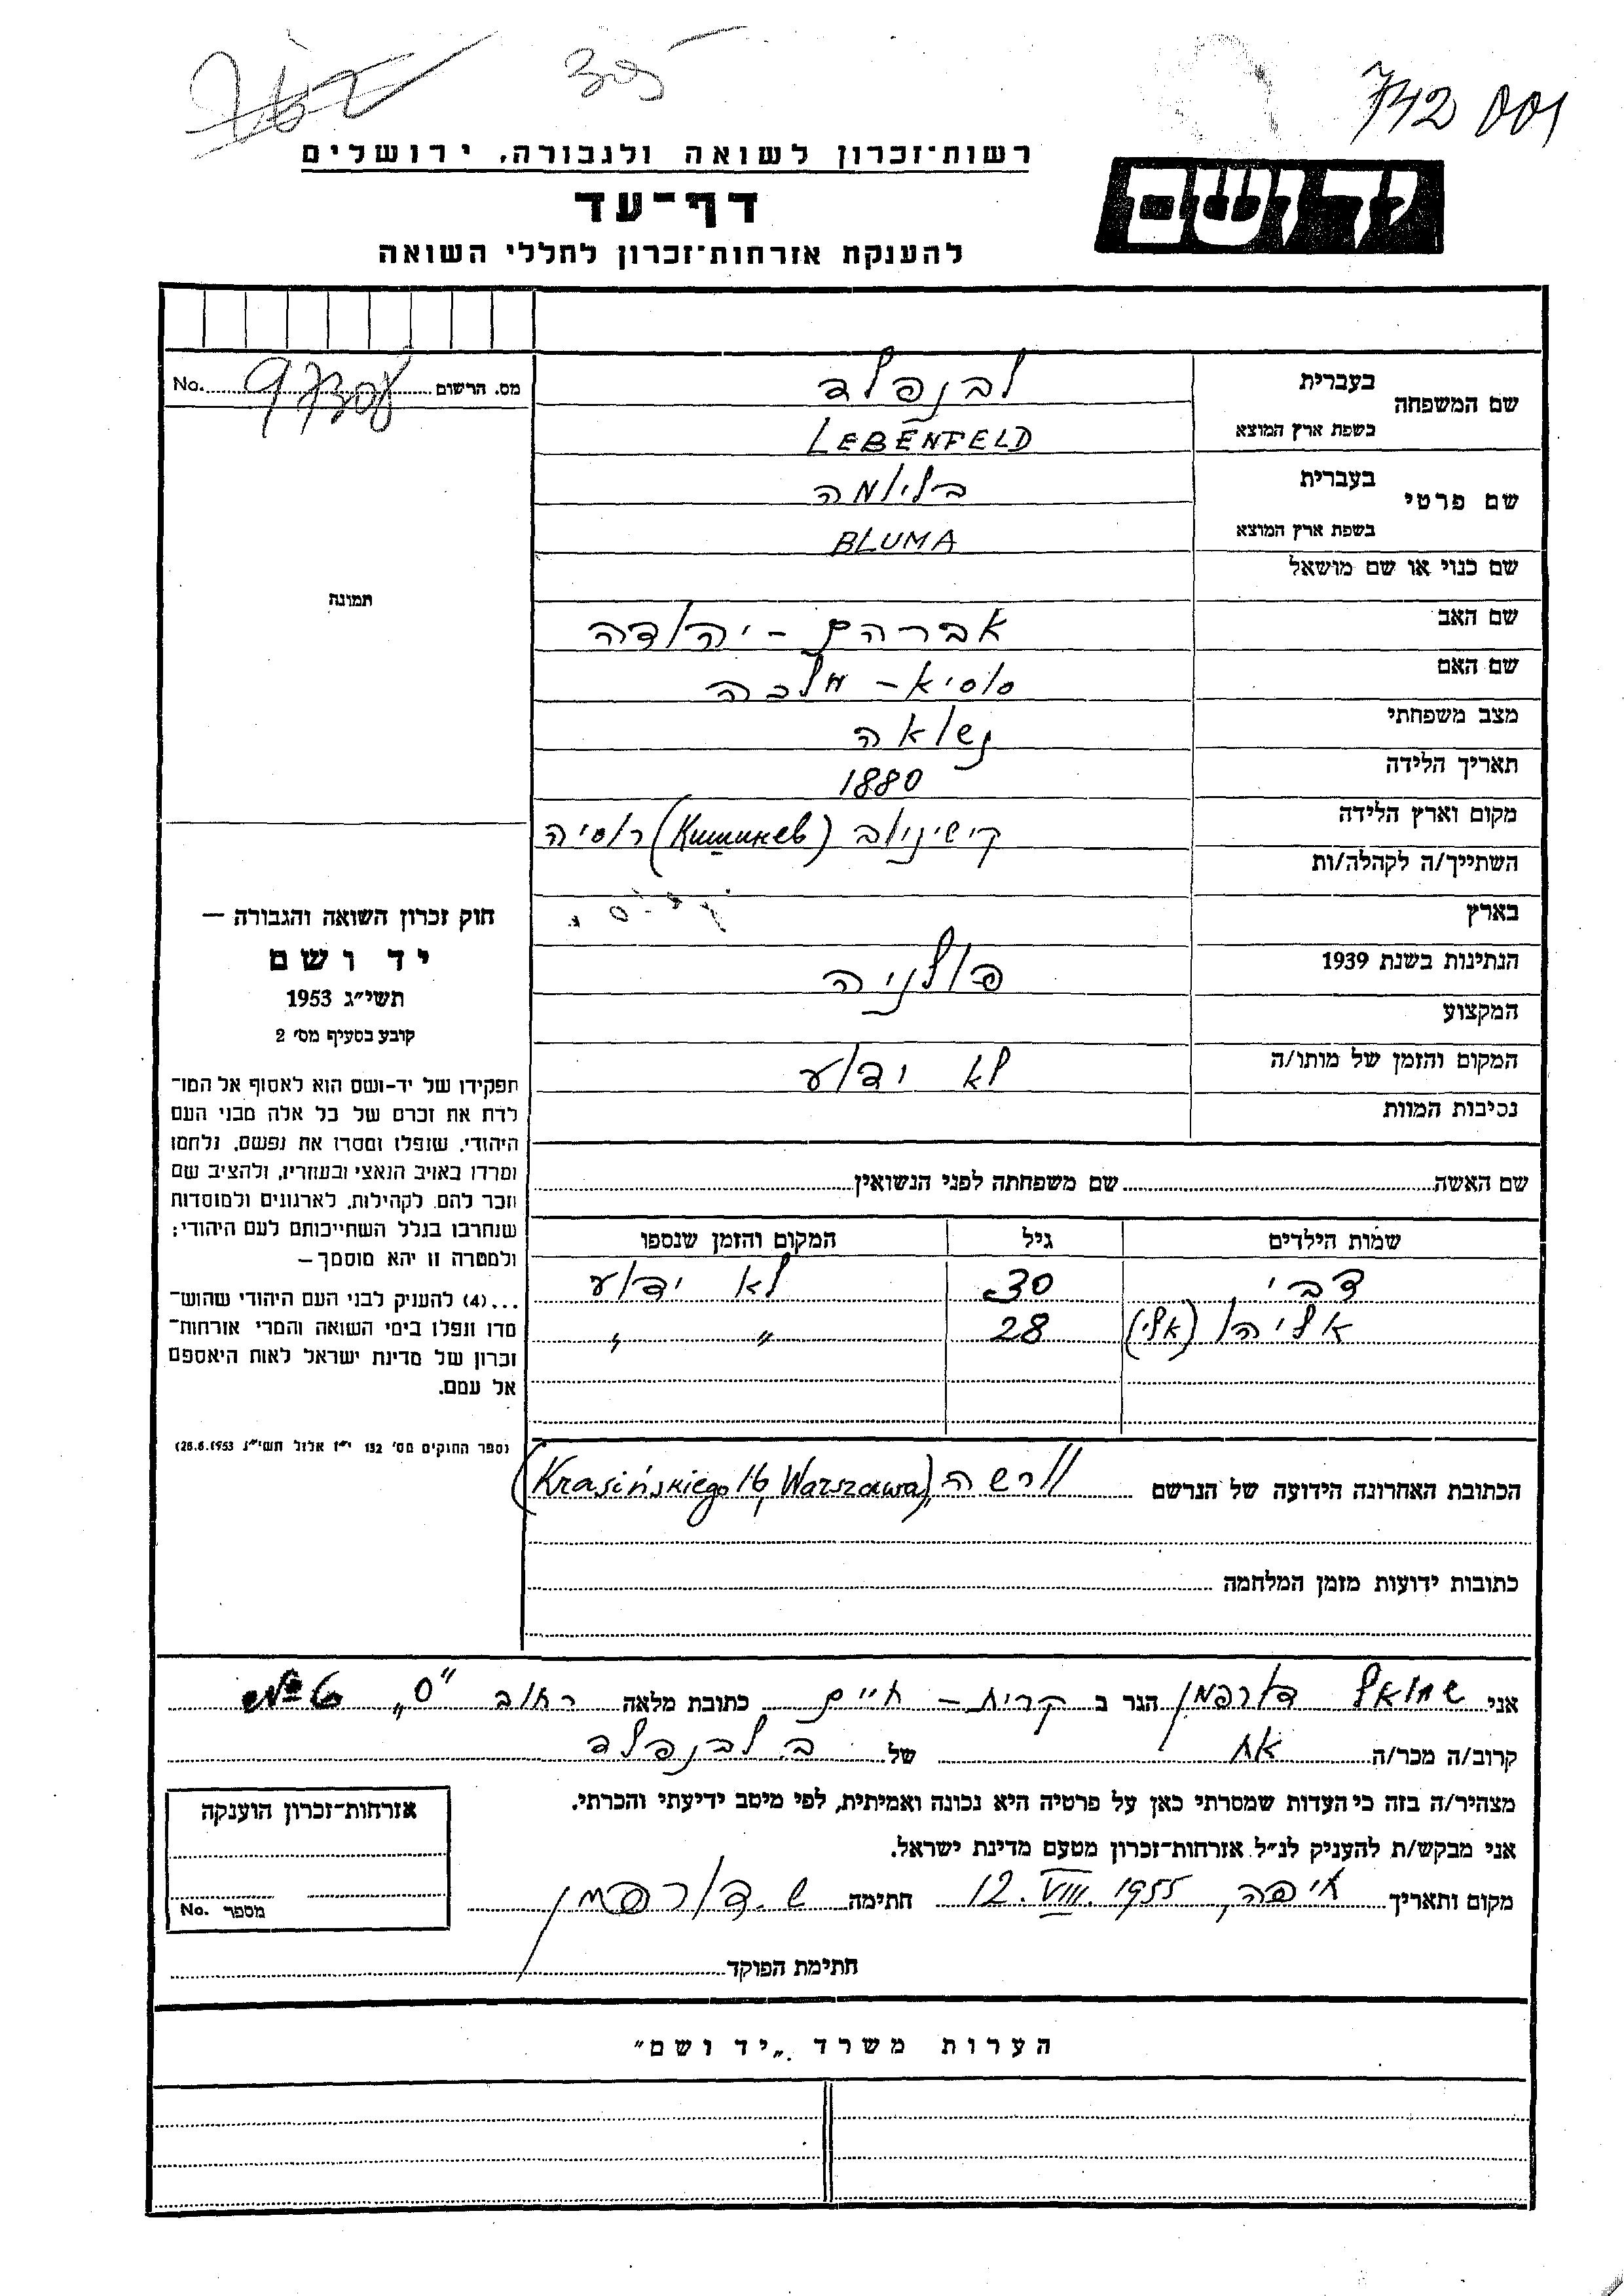 305
742 001
רשות־זכרון לשואה ולגבורה, ירושלים
יד ושם
דף־עד
להענקת אזרחות־זכרון לחללי השואה
No. 97308 מס. הרשום
תמונה
שם המשפחה
בעברית לבנפלד
בשפת ארץ המוצא LEBENFELD
שם פרטי
בעברית בלומה
בשפת ארץ המוצא BLUMA
שם כנוי או שם מושאל
שם האב אברהם - יהודה
שם האם סוסיא - מלכה
מצב משפחתי נשואה
תאריך הלידה 1880
מקום וארץ הלידה קישינוב (Кишинев) רוסיה
השתייך/ה לקהלה/ות
בארץ
הנתינות בשנת 1939 פולניה
המקצוע
המקום והזמן של מותו/ה לא ידוע
נסיבות המוות
חוק זכרון השואה והגבורה —
יד ושם
תשי״ג 1953
קובע בסעיף מס׳ 2
תפקידו של יד-ושם הוא לאסוף אל המו־
לדת את זכרם של כל אלה מבני העם
היהודי, שנפלו ומסרו את נפשם, נלחמו
ומרדו באויב הנאצי ובעוזריו, ולהציב שם
וזכר להם, לקהילות, לארגונים ולמוסדות
שנחרבו בגלל השתייכותם לעם היהודי;
ולמטרה זו יהא מוסמך —
...(4) להעניק לבני העם היהודי שהוש־
מדו ונפלו בימי השואה והמרי אזרחות־
זכרון של מדינת ישראל לאות היאספם
אל עמם.
(ספר החוקים מס׳ 132 י״ז אלול תשי״ג 28.8.1953)
שם האשה שם משפחתה לפני הנשואין
שמות הילדים גיל המקום והזמן שנספו
דבי 30 לא ידוע
אליהו (אלי) 28 " "
הכתובת האחרונה הידועה של הנרשם וורשה (Krasińskiego 16, Warszawa)
כתובות ידועות מזמן המלחמה
אני שמואל דורפמן הגר ב קרית - חיים כתובת מלאה רחוב "ס"
קרוב/ה מכר/ה אח של ב. לבנפלד
מצהיר/ה בזה כי העדות שמסרתי כאן על פרטיה היא נכונה ואמיתית, לפי מיטב ידיעתי והכרתי.
אני מבקש/ת להעניק לנ״ל אזרחות־זכרון מטעם מדינת ישראל.
מקום ותאריך חיפה, 12. VIII. 1955 חתימה ש. דורפמן
חתימת הפוקד
אזרחות־זכרון הוענקה
No. מספר
הערות משרד „יד ושם״